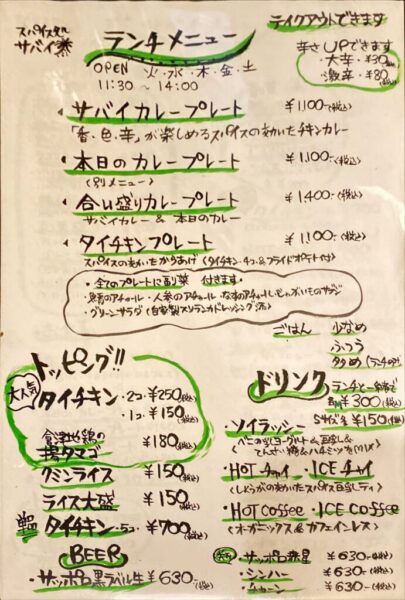 スパイス処
サバイ葉
ランチメニュー
OPEN 火・水・木・金・土
11:30 ~ 14:00
テイクアウトできます
辛さUPできます
・大辛・¥30(税込)
・激辛・¥80(税込)
サバイカレープレート ¥1,100-(税込)
「香・色・辛」が楽しめるスパイスの効いたチキンカレー
本日のカレープレート ¥1,100-(税込)
<別メニュー>
合い盛りカレープレート ¥1,400-(税込)
サバイカレー & 本日のカレー
タイチキンプレート ¥1,100-(税込)
スパイスの効いたからあげ (タイチキン・4コ&フライドポテト付)
・全てのプレートに副菜 付きます・
のアチャール・人参のアチャール・なすのアチャール・じゃがいものサブジ
・グリーンサラダ(自家製スリランカドレッシング)
ごはん 少なめ
ふつう
大盛め(ランチのみ)
トッピング!!
大人気
タイチキン・2コ・¥250(税込)
・1コ・¥150(税込)
地鶏の
揚タマゴ ¥180(税込)
クミンライス ¥150(税込)
ライス大盛 ¥150(税込)
単品 タイチキン・5コ・¥700(税込)
BEER
・サッポロ黒ラベル生 ¥630-(税込)
ドリンク
ランチと一緒で
¥300(税込)
Sサイズ ¥150(税込)
・ソイラッシー
・HOTチャイ ・ICEチャイ
(しょうがの効いたスパイス豆乳ティ)
・HOT coffee ・ICE coffee
(オーガニックス&カフェインレス)
・サッポロ赤星 ¥630-(税込)
・シンハー ¥630-(税込)
・チャーン ¥630-(税込)